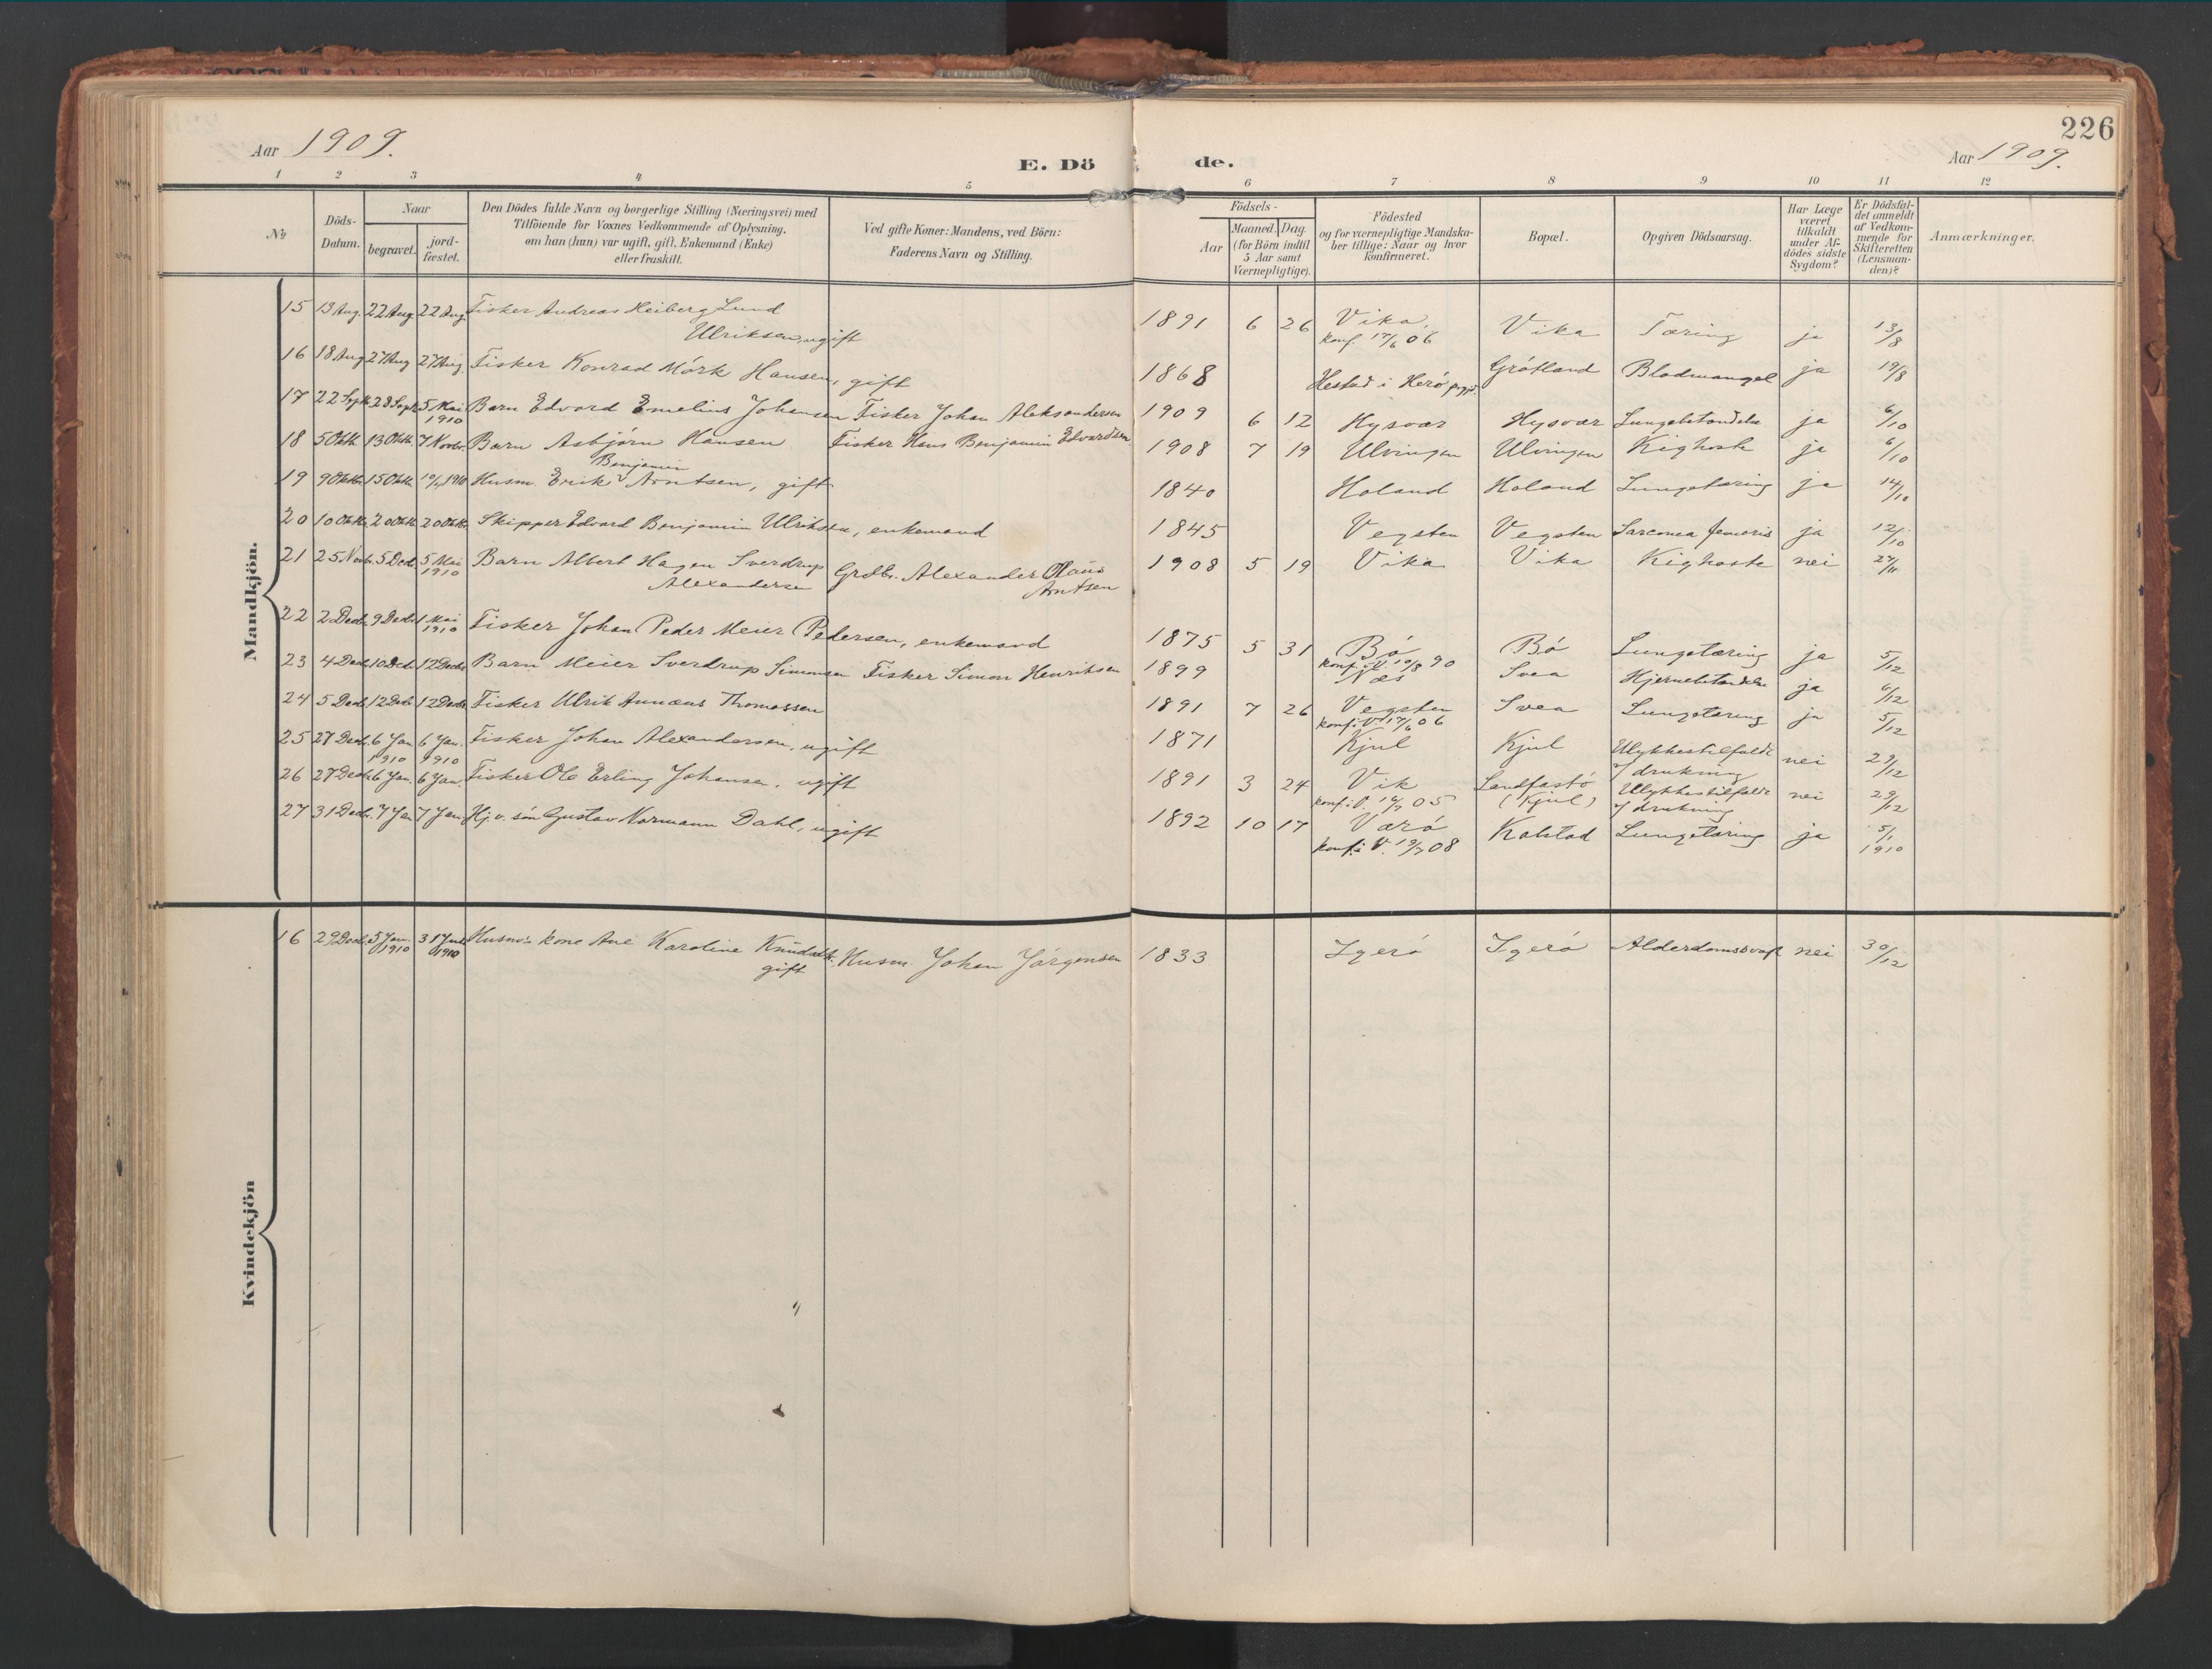 226
Aar 1909.
E. Dö de.
Aar 1909.
1 2 3 4 5 6 7 8 9 10 11 12
No
Döds-
Datum.
Naar
begravet.
jord-
fæstet.
Den Dödes fulde Navn og borgerlige Stilling (Næringsvei) med
Tilföiende for Voxnes Vedkommende af Oplysning,
om han (hun) var ugift, gift, Enkemand (Enke)
eller fraskilt.
Ved gifte Koner: Mandens, ved Börn:
Faderens Navn og Stilling.
Födsels-
Aar
Maaned. Dag.
(for Börn indtil
5 Aar samt
Værnepligtige).
Födested
og for værnepligtige Mandska-
ber tillige: Naar og hvor
konfirmeret.
Bopæl.
Opgiven Dödsaarsag.
Har Læge
været
tilkaldt
under Af-
dödes sidste
Sygdom?
Er Dödsfal-
det anmeldt
af Vedkom-
mende for
Skifteretten
(Lensman-
den)?
Anmærkninger.
Mandkjön.
15 13 Aug. 22 Aug 22 Aug. Fisker Andreas Heiberg Lund
Ulriksen, ugift 1891 6 26 Vika Vika Tæring ja 13/8
konf. 17/6 06
16 18 Aug 27 Aug 27 Aug. Fisker Konrad Mörk Hansen, gift 1868 Hestad i Herö prgj. Grötland Blodmangel ja 19/8
17 22 Septb 28 Septb 5 Mai 1910 Barn Edvard Emelius Johansen Fisker Johan Aleksandersen 1909 6 12 Hysvær Hysvær Lungebetændelse ja 6/10
18 5 Oktb. 13 Oktb. 7 Novbr. Barn Asbjörn Hansen Fisker Hans Benjamin Edvardsen 1908 7 19 Ulvingen Ulvingen Kighoste ja 6/10
Benjamin
19 9 Oktb. 15 Oktb. 1910 Husm. Erik Arntsen, gift 1840 Holand Holand Lungetæring ja 14/10
20 10 Oktb. 20 Oktb. 20 Oktb. Skipper Edvard Benjamin Ulriksen, enkemand 1845 Vegsten Vegsten Sarcoma femoris ja 12/10
21 25 Novb. 5 Decb. 5 Mai 1910 Barn Albert Hagen Sverdrup Grdbr. Alexander Olaus 1908 5 19 Vika Vika Kighoste nei 27/11
Alexandersen Arntsen
22 2 Decb. 9 Decb. 1 Mai 1910 Fisker Johan Peder Meier Pedersen, enkemand 1875 5 31 Bö Bö Lungetæring ja 5/12
konf. i V. 10/8 90
23 4 Decb. 10 Decb. 12 Decb. Barn Meier Sverdrup Simonsen Fisker Simon Henriksen 1899 Næs Svea Hjernebetændelse ja 6/12
24 5 Decb. 12 Decb. 12 Decb. Fisker Ulrik Annæus Thomassen 1891 7 26 Vegsten Svea Lungetæring ja 5/12
konf. i V. 17/6 06
25 27 Decb. 6 Jan 1910 6 Jan. 1910 Fisker Johan Alexandersen, ugift 1871 Kjul Kjul Ulykkestilfælde nei 29/12
drukning
26 27 Decb. 6 Jan. 6 Jan. Fisker Ole Erling Johansen, ugift 1891 3 24 Vik Landfastö Ulykkestilfælde nei 29/12
konf. i V. 05 (Kjul) drukning
27 31 Decb. 7 Jan 7 Jan. Hj. v. sön Gustav Normann Dahl, ugift 1892 10 17 Værö Kolstad Lungetæring ja 5/1 1910
konf. i V. 19/7 08
Kvindekjön
16 29 Decb. 5 Jan. 1910 31 1910 Husm's kone Ane Karoline Knudsdt. Husm. Johan Jörgensen 1833 Igerö Igerö Alderdomssvagh nei 30/12
gift